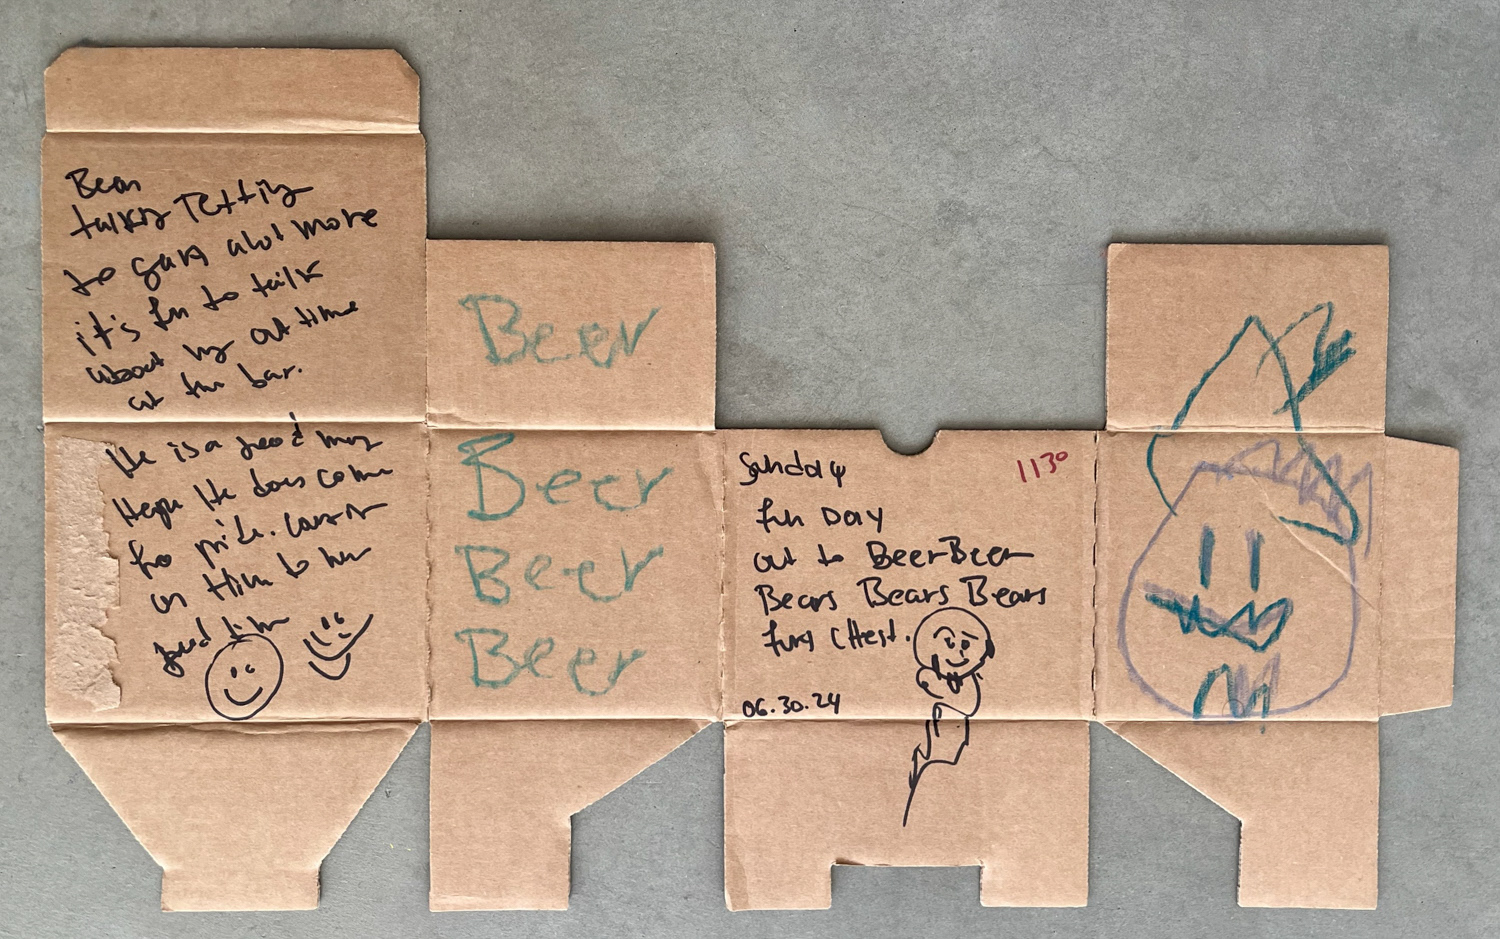 Bear
talking
to Gary alot more
it's fun to talk
about my out time
at the bar.
He is a good
He does come
for pride.
on Him to have
good time
Beer
Beer
Beer
Beer
Sunday
fun DAY
out to BeerBeer
Bears Bears Bears
furry CHest.
06.30.24
113°